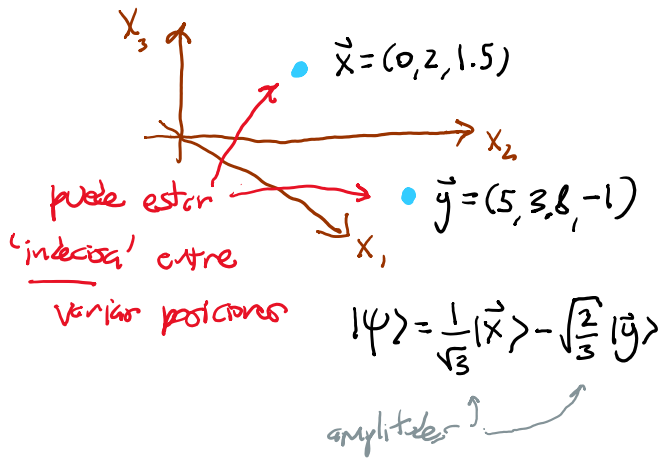 X₃
x⃗ = (0, 2, 1.5)
X₂
puede estar
y⃗ = (5, 3.8, -1)
'indecisa' entre
X₁
varias posiciones
|ψ⟩ = 1/√3 |x⃗⟩ - √(2/3) |y⃗⟩
amplitudes